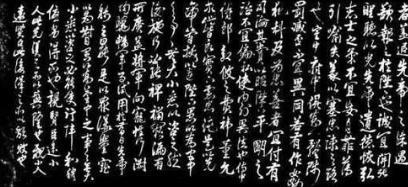 者蓋追先帝之殊遇
欲報之於陛下也誠宜開張
聖聽以光先帝遺德恢弘
志士之氣不宜妄自菲薄
引喻失義以塞忠諫之路
也宮中府中俱為一體陟
罰臧否不宜異同若有作奸
犯科及為忠善者宜付有
司論其刑賞以昭陛下平明之
治不宜偏私使內外異法也侍中
侍郎郭攸之費禕董允
等此皆良實志慮忠純是
以先帝簡拔以遺陛下愚以為宮中
之事事無大小悉以咨之然
後施行必能裨補闕漏有
所廣益將軍向寵性行淑
均曉暢軍事試用於昔日先帝
稱之曰能是以眾議舉寵為督
愚以為營中之事事無大
小悉以咨之必能使行陣和睦
優劣得所也親賢臣遠小
人此先漢所以興隆也親小人
遠賢臣此後漢所以傾頹也